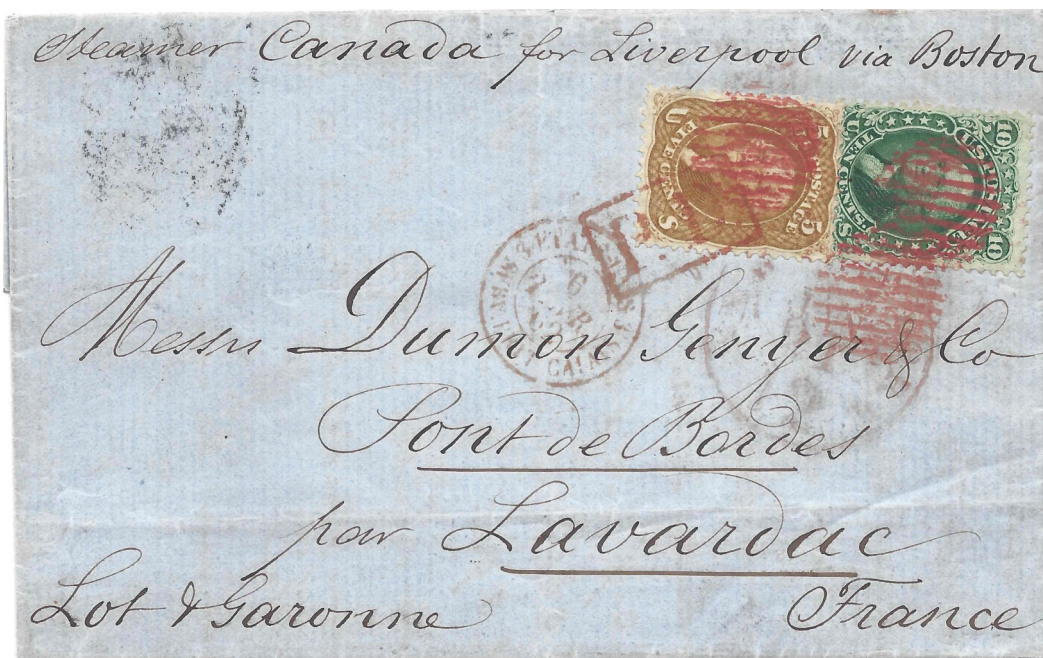 Steamer Canada for Liverpool via Boston
U POSTAGE
FIVE CENTS
5
S
10 U.S. POSTAGE 10
U TEN CENTS S
6
CALAIS
Messrs Dumon Genyer & Co
Pont de Bordes
par Lavardac
Lot & Garonne
France